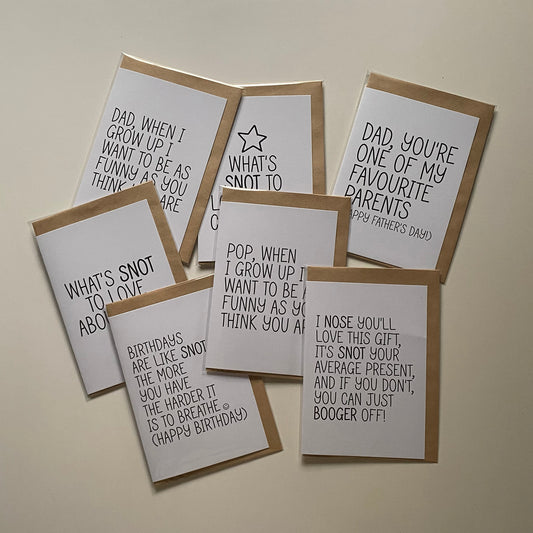 DAD, WHEN I
GROW UP I
WANT TO BE AS
FUNNY AS YOU
THINK YOU ARE
WHAT'S
SNOT TO
DAD, YOU'RE
ONE OF MY
FAVOURITE
PARENTS
HAPPY FATHER'S DAY!)
WHAT'S SNOT
TO LOVE
POP, WHEN
I GROW UP I
WANT TO BE A
FUNNY AS YO
THINK YOU AR
BIRTHDAYS
ARE LIKE SNOT
THE MORE
YOU HAVE
THE HARDER IT
IS TO BREATHE☺
(HAPPY BIRTHDAY)
I NOSE YOU'LL
LOVE THIS GIFT,
IT'S SNOT YOUR
AVERAGE PRESENT,
AND IF YOU DON'T,
YOU CAN JUST
BOOGER OFF!